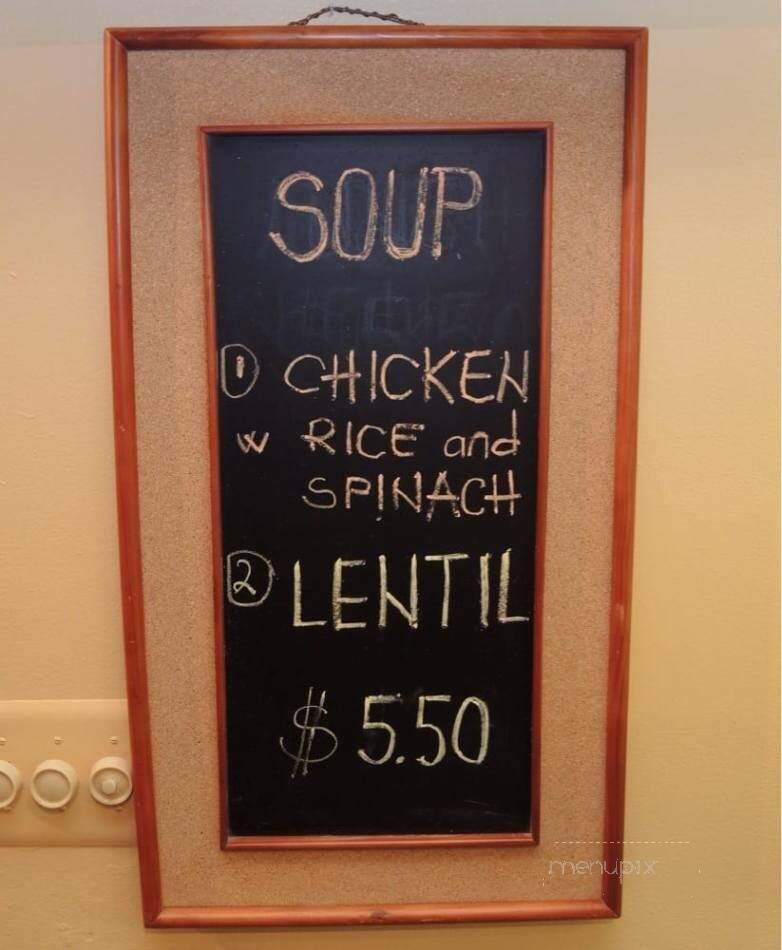 SOUP
① CHICKEN
w RICE and
SPINACH
② LENTIL
$ 5.50
menupix